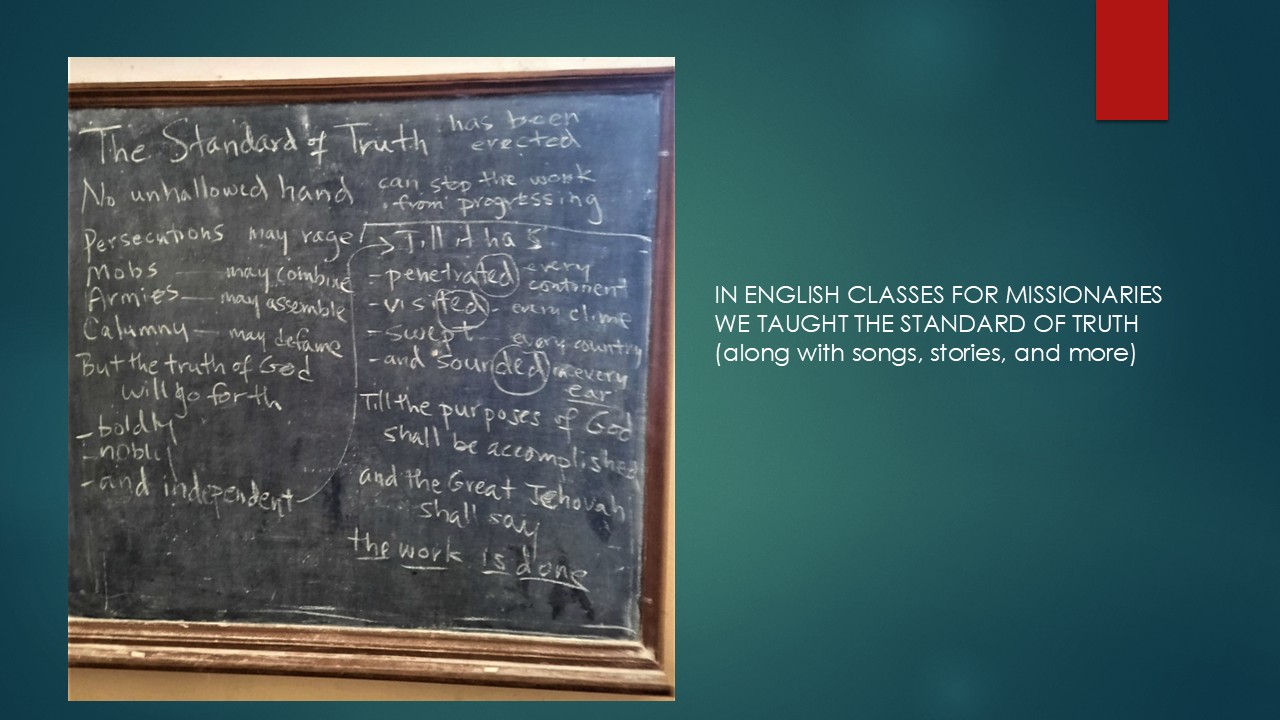 The Standard of Truth has been
erected
No unhallowed hand can stop the work
from progressing
Persecutions may rage
Mobs — may combine
Armies — may assemble
Calumny — may defame
But the truth of God
will go forth
- boldly
- nobly
- and independent
Till it has
- penetrated every
continent
- visited - every clime
- swept every country
- and sounded in every
ear
Till the purposes of God
shall be accomplished
and the Great Jehovah
shall say
the work is done
IN ENGLISH CLASSES FOR MISSIONARIES
WE TAUGHT THE STANDARD OF TRUTH
(along with songs, stories, and more)